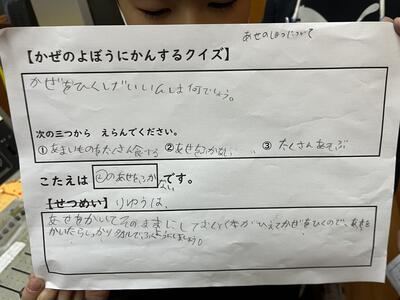 あせのしまつについて
【かぜのよぼうにかんするクイズ】
かぜをひくげいいんは何でしょう。
次の三つから えらんでください。
①あまいものをたくさん食する ②あせをふかない ③たくさんあそぶ
こたえは ②のあせをふかない です。
【せつめい】りゆうは、
あせをかいてそのままにして
ひえてかぜをひくので、あせを
かいたらしっかりタオルで